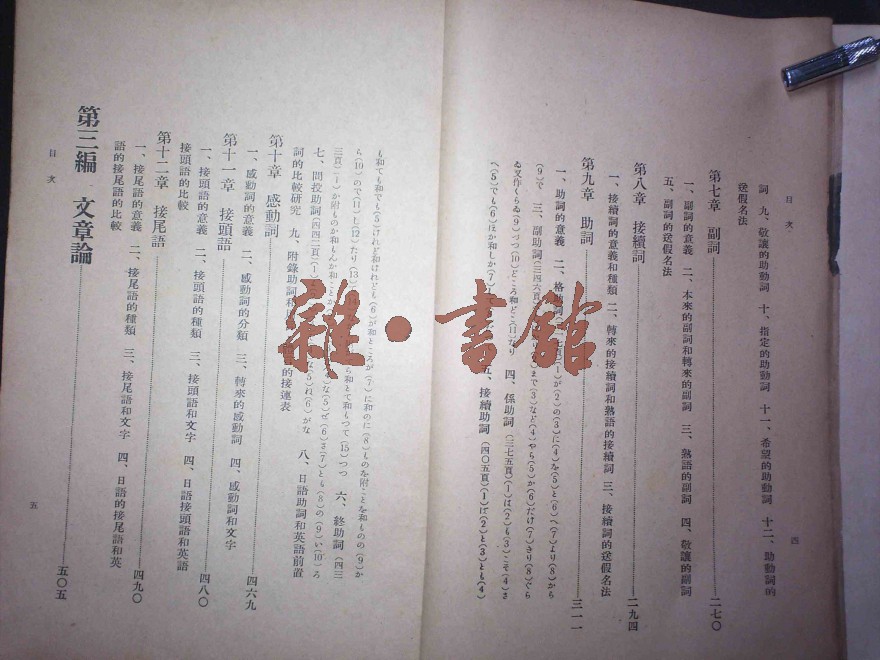 目次
詞 九、敬讓的助動詞 十、指定的助動詞 十一、希望的助動詞 十二、助動詞的
送假名法
第七章 副詞 二七〇
一、副詞的意義 二、本來的副詞和轉來的副詞 三、熟語的副詞 四、敬讓的副詞
五、副詞的送假名法
第八章 接續詞 二九四
一、接續詞的意義和種類 二、轉來的接續詞和熟語的接續詞 三、接續詞的送假名法
第九章 助詞 三一一
一、助詞的意義 二、格助詞 (1)が(2)の(3)に(4)を(5)と(6)へ(7)より(8)から
(9)で 三、副助詞(三四六頁) まで(3)など(4)やら(5)か(6)だけ(7)きり(8)ぐら
ゐ又作くらゐ(9)づつ(10)どころ和どこ(11)なり 四、係助詞(三七五頁)(1)は(2)も(3)こそ(4)さ
(5)でも(6)ほか和しか(7) 五、接續助詞(四〇五頁)(1)ば(2)と(3)とも(4)
四
も和ても和でも(5)けれど和けれども(6)が和ところが(7)に和のに(8)ものを附ことを和ものの(9)か
ら(10)ので(11)し(12)たり(13) ら和とて和もつて(15)つつ 六、終助詞(四三
三頁)(1)か附ものか和もんか和ことか な(5)ぜ(6)さ(7)とも(8)の(9)い(10)ろ
七、間投助詞(四四二頁)(1) な(5)ね(6)がな 八、日語助詞和英語前置
詞的比較研究 九、附錄助詞 的接連表
第十章 感動詞 四六九
一、感動詞的意義 二、感動詞的分類 三、轉來的感動詞 四、感動詞和文字
第十一章 接頭語 四八〇
一、接頭語的意義 二、接頭語的種類 三、接頭語和文字 四、日語接頭語和英語
接頭語的比較
第十二章 接尾語 四九〇
一、接尾語的意義 二、接尾語的種類 三、接尾語和文字 四、日語的接尾語和英
語的接尾語的比較
第三編 文章論 五〇五
目次
五
雜·書館